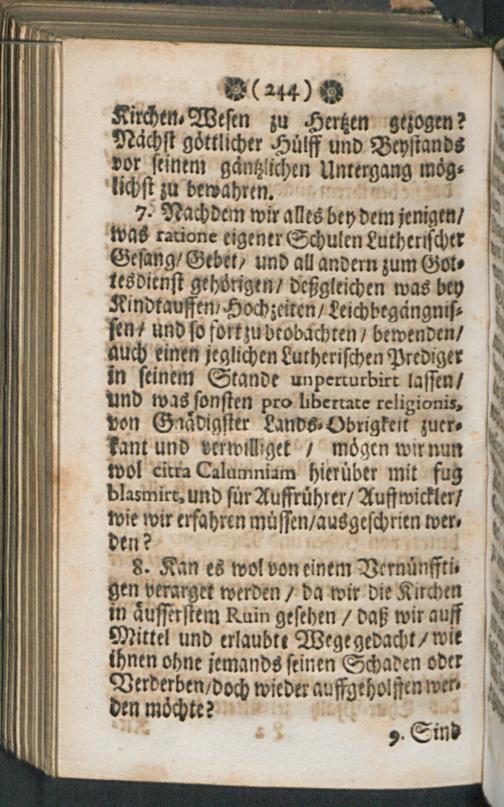 (244)
Kirchen-Wesen zu Hertzen gezogen?
Nächst göttlicher Hülff und Beystands
vor seinem gäntzlichen Untergang mög-
lichst zu bewahren.
7. Nachdem wir alles bey dem jenigen/
was ratione eigener Schulen Lutherischer
Gesang/ Gebet/ und all andern zum Got-
tesdienst gehörigen/ deßgleichen was bey
Kindtauffen/ Hochzeiten/ Leichbegängnis-
sen/ und so fort zu beobachten/ bewenden/
auch einen jeglichen Lutherischen Prediger
in seinem Stande unperturbirt lassen/
und was sonsten pro libertate religionis,
von Gnädigster Lands-Obrigkeit zuer-
kant und verwilliget / mögen wir nun
wol citra Calumniam hierüber mit fug
blasmirt, und für Auffrührer/ Auffwickler/
wie wir erfahren müssen/ausgeschrien wer-
den?
8. Kan es wol von einem Vernünffti-
gen verarget werden / da wir die Kirchen
in äusserstem Ruin gesehen / daß wir auff
Mittel und erlaubte Wege gedacht/ wie
ihnen ohne jemands seinen Schaden oder
Verderben/doch wieder auffgeholffen wer-
den möchte?
9. Sind